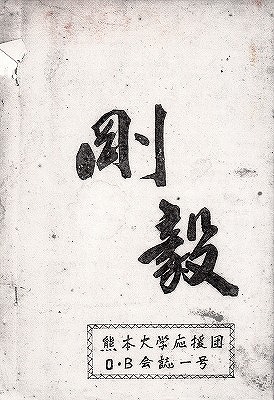 剛毅
熊本大学応援団
O・B会誌一号